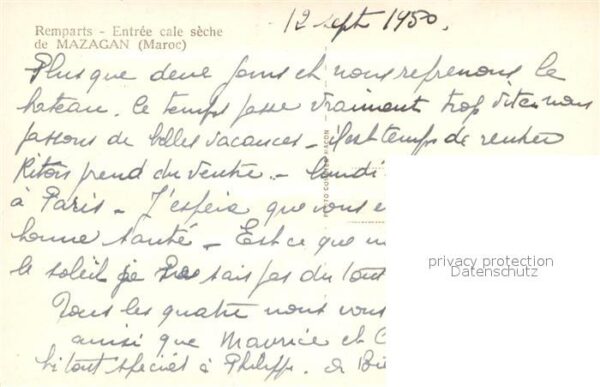 12 Sept 1950.
Remparts - Entrée cale sèche
de MAZAGAN (Maroc)
Plus que deux jours et nous reprenons le
bateau. le temps passe vraiment trop vite, nous
passons de belles vacances - il est temps de rentrer
prend du ventre. - Lundi
à Paris - J'espère que vous
bonne santé - Est ce que
le soleil je sais pas du tout
Tous les quatre nous vous
ainsi que Maurice et
spécial à Philippe.
privacy protection
Datenschutz